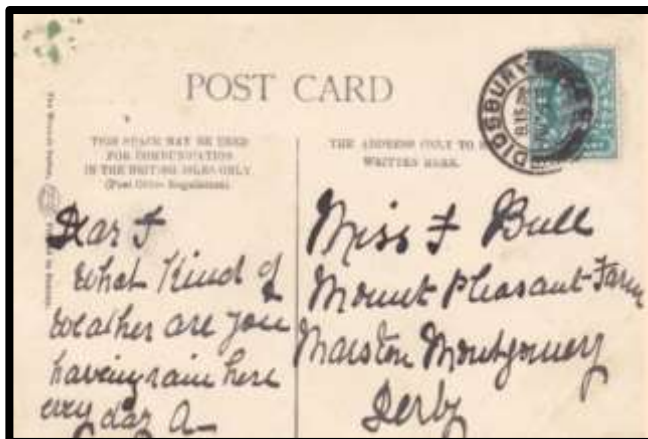 POST CARD
THIS SPACE MAY BE USED
FOR COMMUNICATION
IN THE BRITISH ISLES ONLY
(Post Office Regulation).
THE ADDRESS ONLY TO BE
WRITTEN HERE.
DIDSBURY
8.15 PM
Dear F
What Kind of
weather are you
having rain here
evry day A
Miss F Bull
Mount Pleasant Farm
Marston Montgomery
Derby